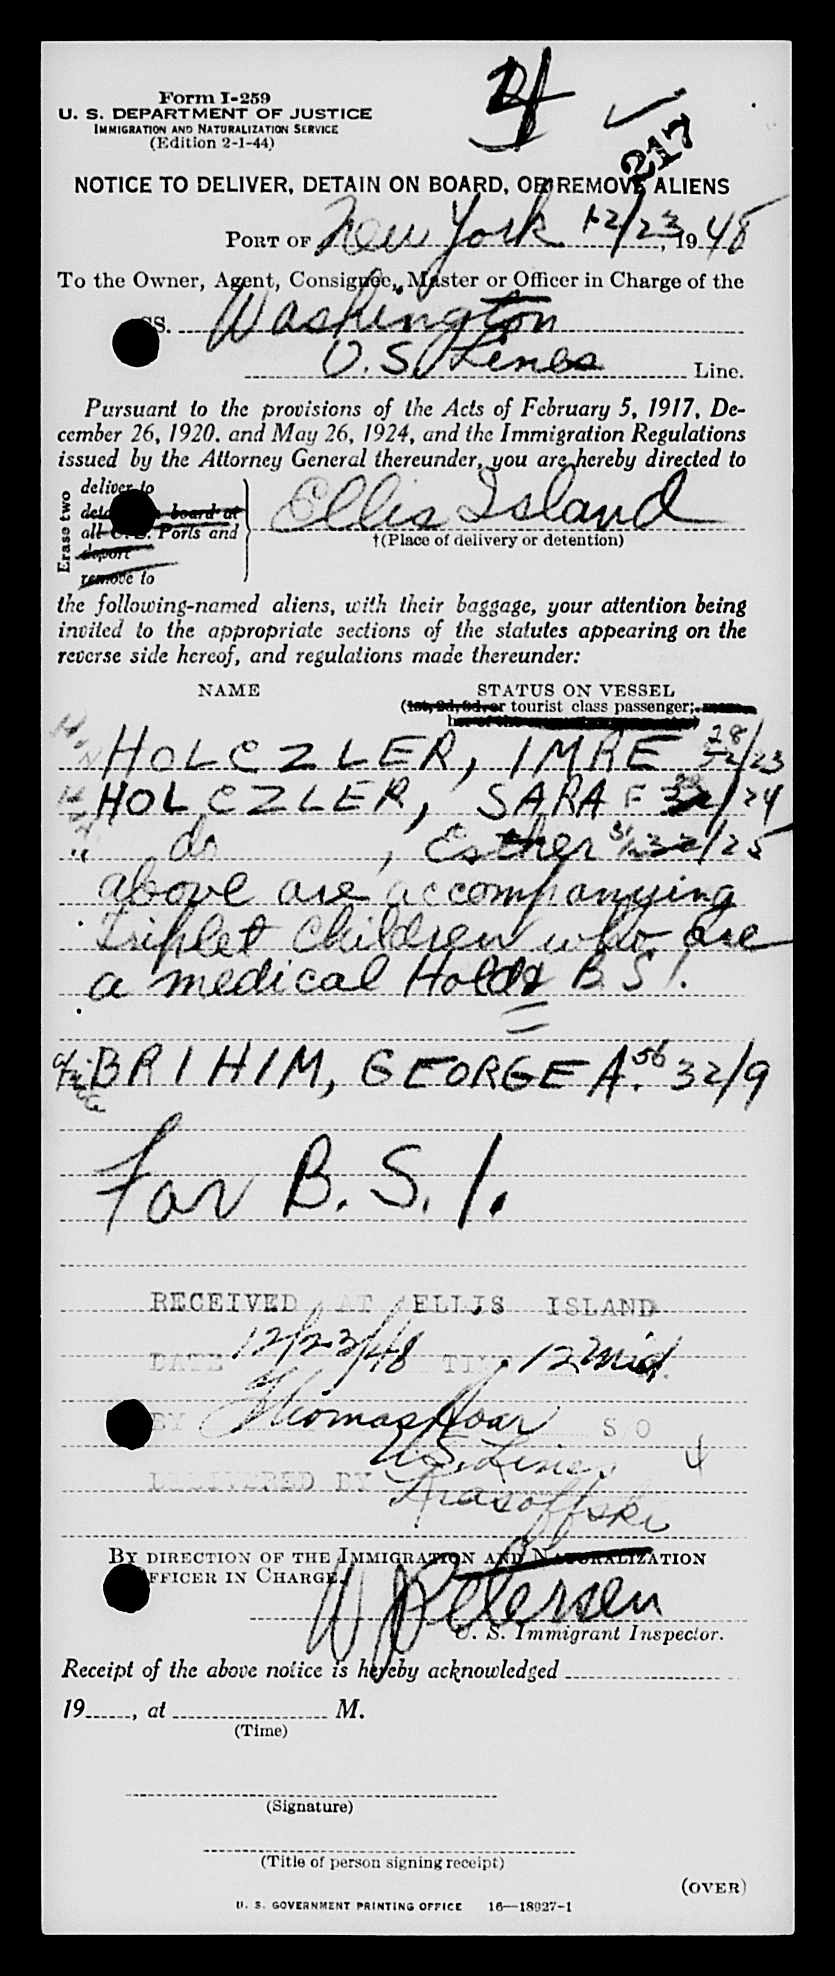 Form I-259
U. S. DEPARTMENT OF JUSTICE
IMMIGRATION AND NATURALIZATION SERVICE
(Edition 2-1-44)
217
NOTICE TO DELIVER, DETAIN ON BOARD, OR REMOVE ALIENS
PORT OF New York 12/23, 1948
To the Owner, Agent, Consignee, Master or Officer in Charge of the
SS. Washington
U.S. Lines Line.
Pursuant to the provisions of the Acts of February 5, 1917, De-
cember 26, 1920, and May 26, 1924, and the Immigration Regulations
issued by the Attorney General thereunder, you are hereby directed to
Erase two
deliver to
board at
all Ports and
deport
remove to
Ellis Island
†(Place of delivery or detention)
the following-named aliens, with their baggage, your attention being
invited to the appropriate sections of the statutes appearing on the
reverse side hereof, and regulations made thereunder:
NAME STATUS ON VESSEL
(1st, 2d, 3d, or tourist class passenger;
HOLCZLER, IMRE 28 /23
HOLCZLER, SARA F /24
" do , Esther 31 /25
above are accompanying
Triplet Children who are
a medical Hold B.S.I.
BRIHIM, GEORGE A. 56 32/9
For B.S.I.
RECEIVED AT ELLIS ISLAND
DATE 12/23/48 TIME 12 Mid.
BY Thomas Hoar S O
U.S. Lines
DELIVERED BY Krasoffski
BY DIRECTION OF THE IMMIGRATION AND NATURALIZATION
OFFICER IN CHARGE.
W Petersen
U. S. Immigrant Inspector.
Receipt of the above notice is hereby acknowledged
19, at M.
(Time)
(Signature)
(Title of person signing receipt)
(OVER)
U. S. GOVERNMENT PRINTING OFFICE 16—18927-1